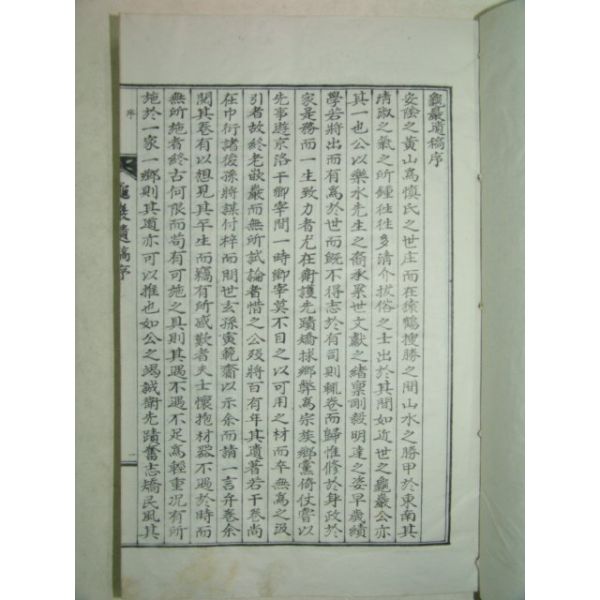 龜巖遺稿序
安陰之黃山爲愼氏之世庄而在猿鶴搜勝之間山水之勝甲於東南其
淸淑之氣之所鍾往往多清介拔俗之士出於其間如近世之龜巖公亦
其一也公以樂水先生之裔承累世文獻之緖稟剛毅明達之姿早歲績
學若將出而有爲於世而旣不得志於有司則輒卷而歸惟修於身政於
家是務而一生致力者尤在衛護先蹟矯捄鄕弊爲宗族鄕黨倚仗嘗以
先事遊京洛干鄕宰間一時鄕宰莫不目之以可用之材而卒無爲之汲
引者故終老嵌巖而無所試論者惜之公歿將百有年其遺著若干卷尙
在巾衍諸後孫將謀付梓而朋世玄孫寅範齎以示余而請一言弁卷余
閱其卷有以想見其平生而竊有所感歎者夫士懷抱材器不遇於時而
無所施者終古何限而苟有可施之具則其遇不遇不足爲輕重况有所
施於一家一鄕則其遺亦可以推也如公之竭誠衛先蹟奮志矯民風其
序
龜巖遺稿序
一